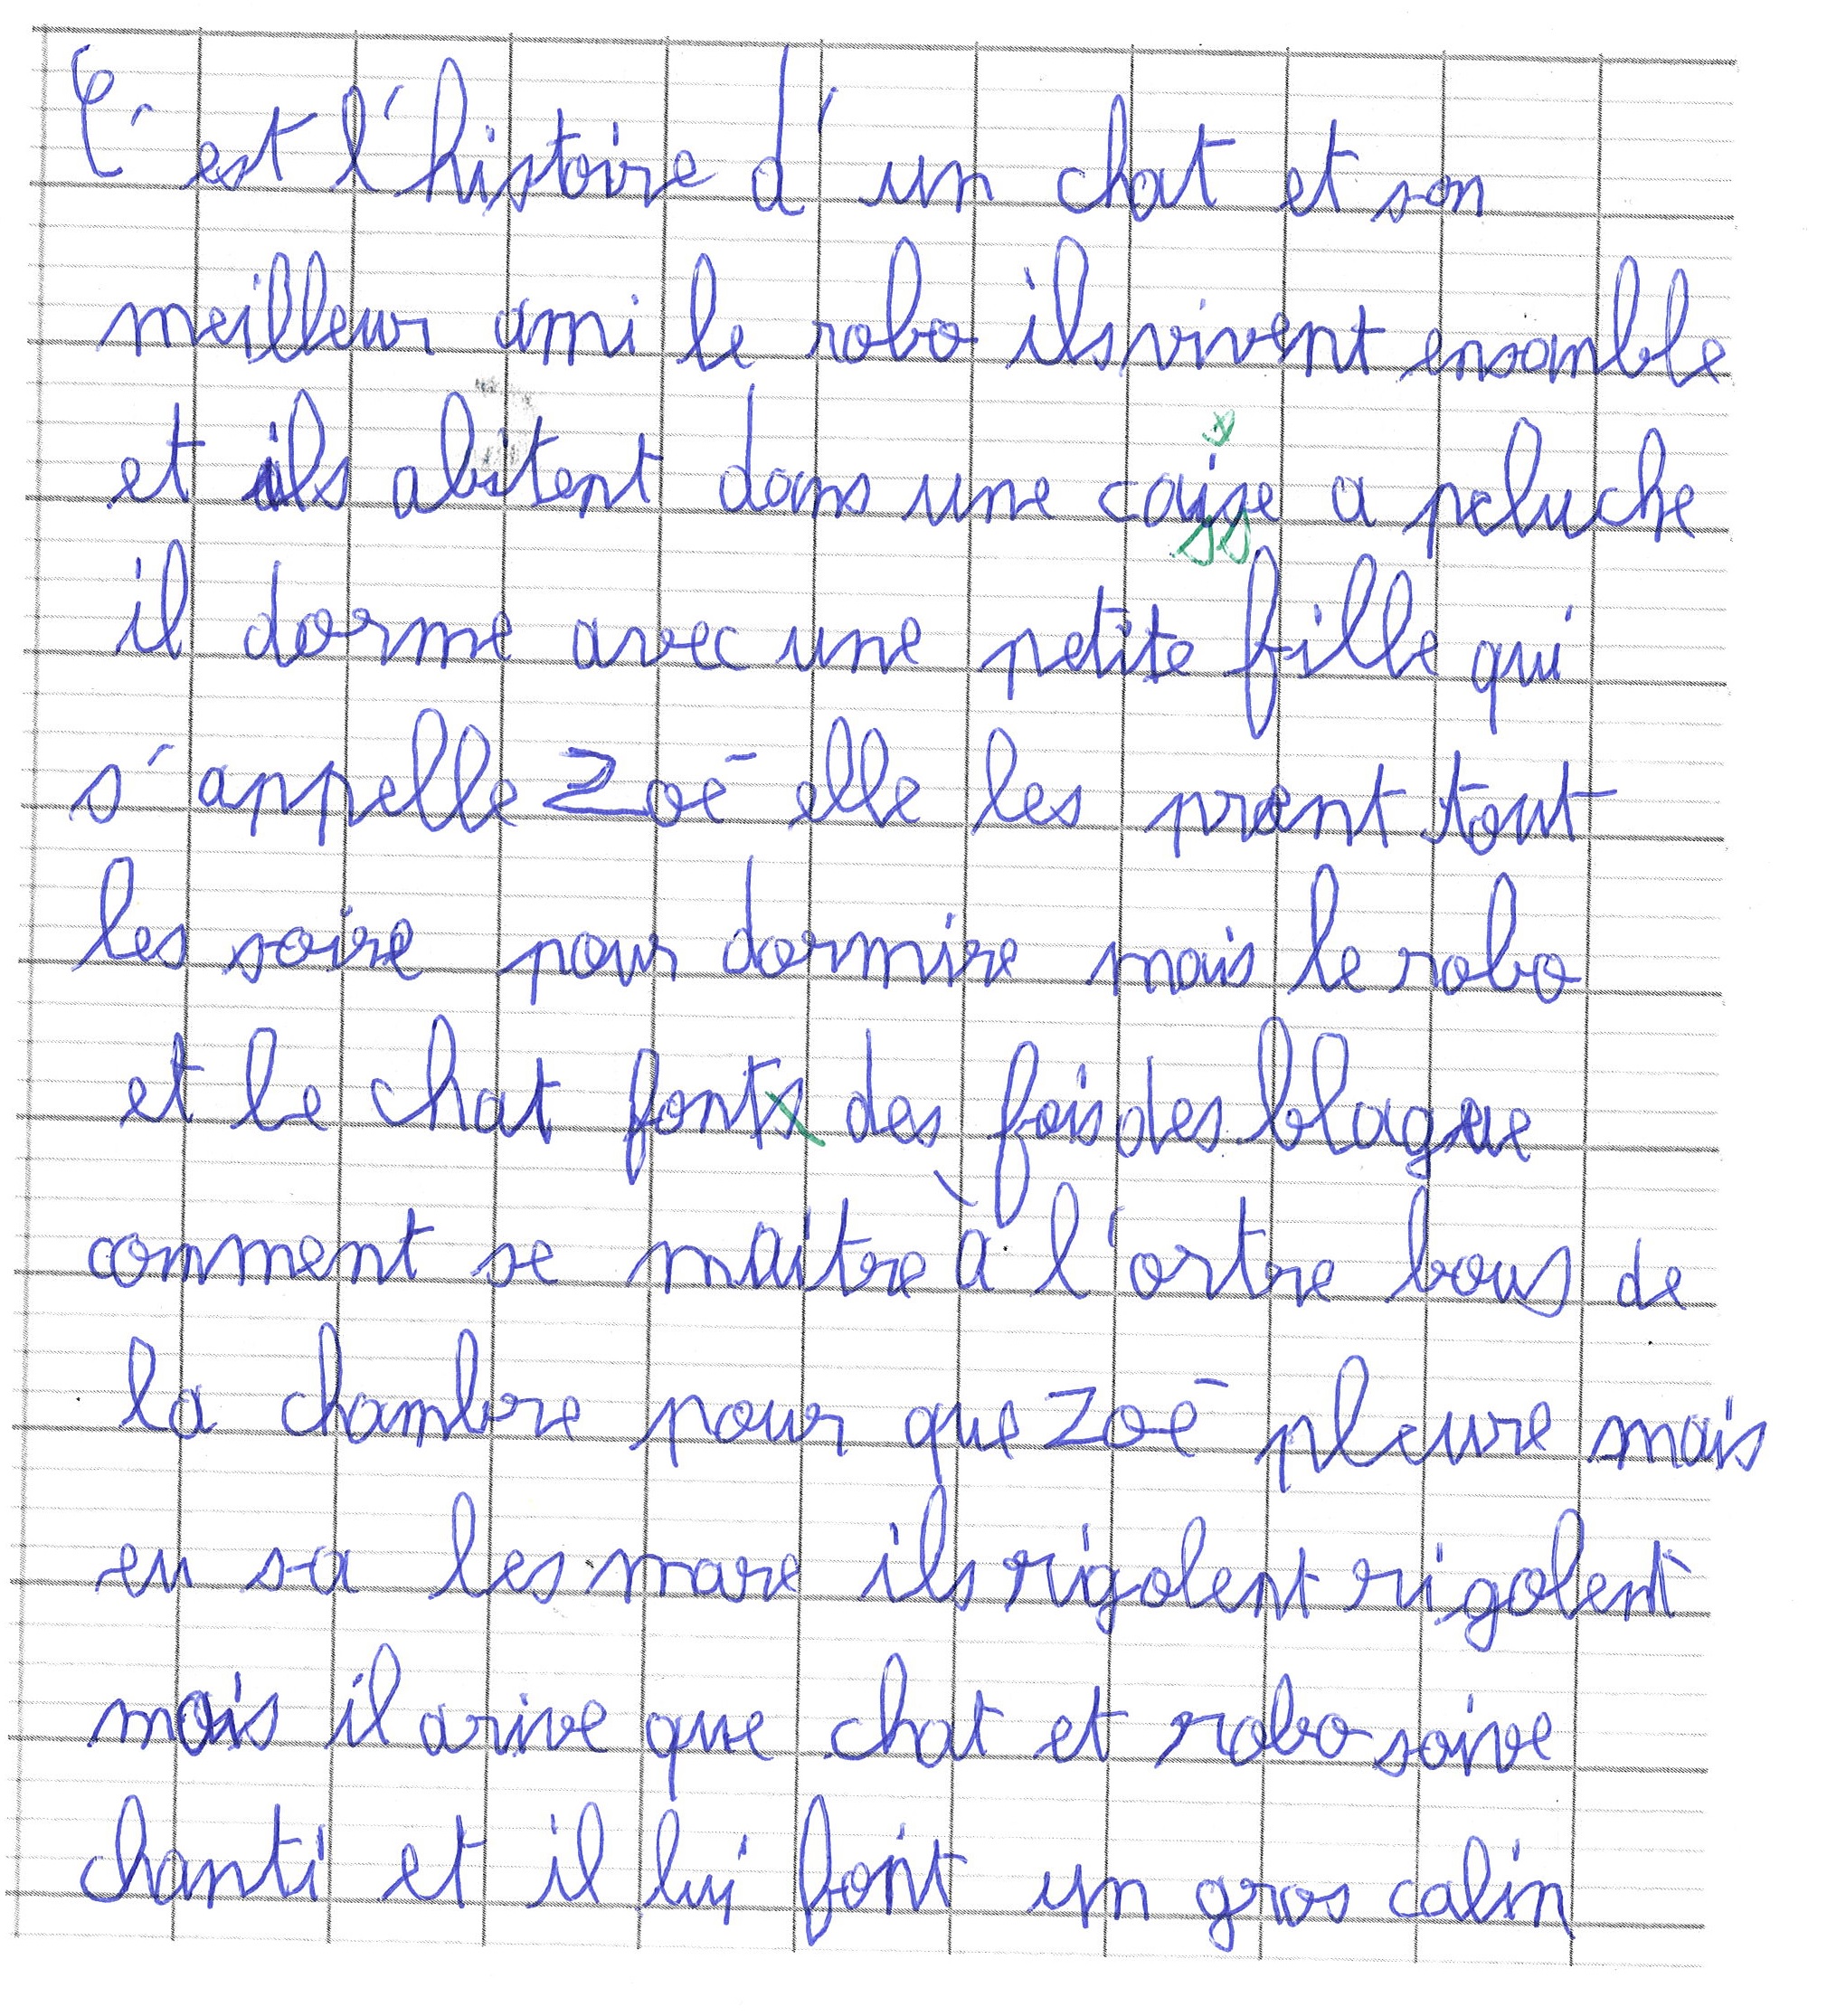 C'est l'histoire d'un chat et son
meilleur ami le robo ils vivent ensamble
et ils abitent dans une caisse a peluche
il dorme avec une petite fille qui
s'appelle Zoé elle les prent tout
les soire pour dormire mais le robo
et le chat font des fois des blague
comment se maitre à l'ortre bous de
la chambre pour que Zoé pleure mais
eu sa les mare ils rigolent rigolent
mais il arive que chat et robo soive
chanti et il lui font un gros calin